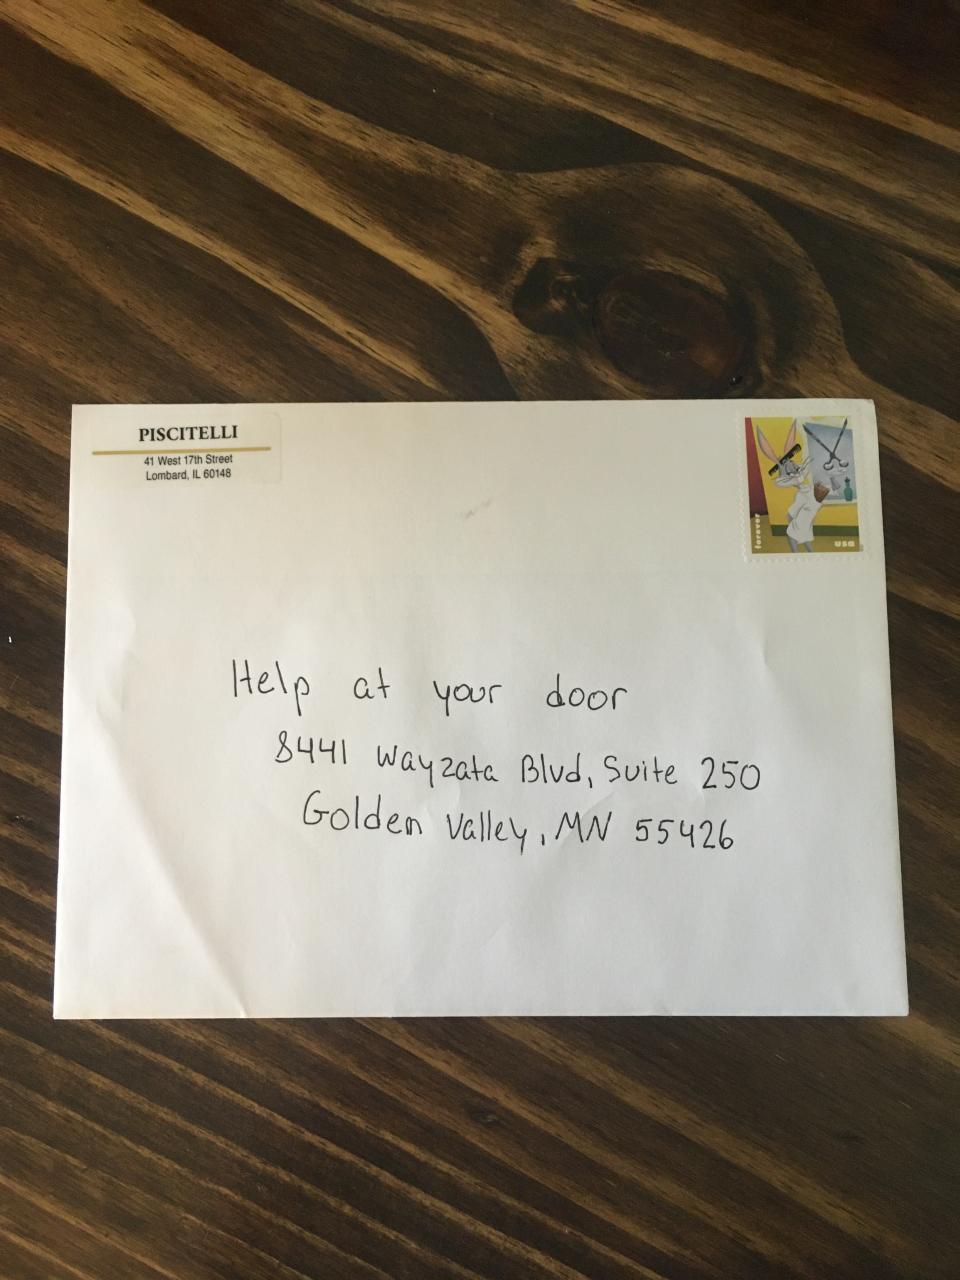 PISCITELLI
41 West 17th Street
Lombard, IL 60148
forever
usa
Help at your door
8441 Wayzata Blvd, Suite 250
Golden Valley, MN 55426